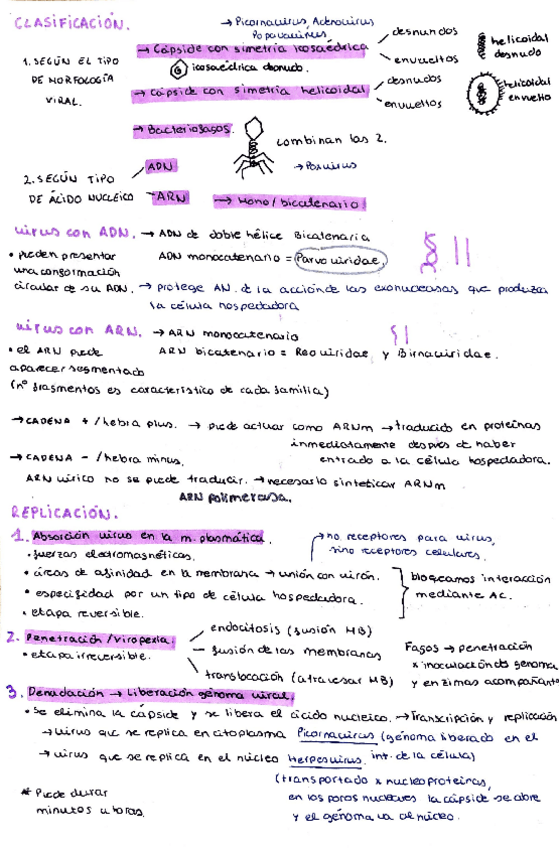 CLASIFICACIÓN.
→ Picornavirus, Adenovirus
Papovavirus
1. SEGÚN EL TIPO
DE MORFOLOGÍA
VIRAL.
→ Cápside con simetría icosaédrica
desnudos
envueltos
icosaédrica desnudo.
→ Cápside con simetría helicoidal
desnudos
envueltos
helicoidal
desnudo
helicoidal
envuelto
→ Bacteriófagos.
combinan las 2.
→ Poxvirus
2. SEGÚN TIPO
DE ÁCIDO NUCLEICO
ADN
ARN
→ Mono/bicatenario
virus con ADN. → ADN de doble hélice Bicatenaria
ADN monocatenario = Parvoviridae.
• pueden presentar
una conformación
circular de su ADN. → protege AN. de la acción de las exonucleasas que produzca
la célula hospedadora
virus con ARN. → ARN monocatenario
ARN bicatenario = Reoviridae y Birnaviridae.
• el ARN puede
aparecer segmentado
(nº fragmentos es característico de cada familia)
→ CADENA + / hebra plus. → puede actuar como ARNm → traducido en proteínas
inmediatamente después de haber
entrado a la célula hospedadora.
→ CADENA - / hebra minus.
ARN vírico no se puede traducir. → necesario sintetizar ARNm
ARN polimerasa.
REPLICACIÓN.
1. Absorción virus en la m. plasmática.
→ no receptores para virus,
sino receptores celulares.
• fuerzas electromagnéticas.
• áreas de afinidad en la membrana → unión con virón.
• especificidad por un tipo de célula hospedadora.
• etapa reversible.
bloqueamos interacción
mediante AC.
2. Penetración / Viropexia.
• etapa irreversible.
endocitosis (fusión MB)
fusión de las membranas
translocación (atravesar MB)
Fagos → penetración
x inoculación de genoma
y enzimas acompañante
3. Denudación → Liberación genoma viral.
• Se elimina la cápside y se libera el ácido nucleico. → Transcripción y replicación
→ virus que se replica en citoplasma Picornavirus (genoma liberado en el
int. de la célula)
→ virus que se replica en el núcleo Herpesvirus.
(transportado x nucleoproteínas,
en los poros nucleares la cápside se abre
y el genoma va al núcleo.
* Puede durar
minutos u horas.